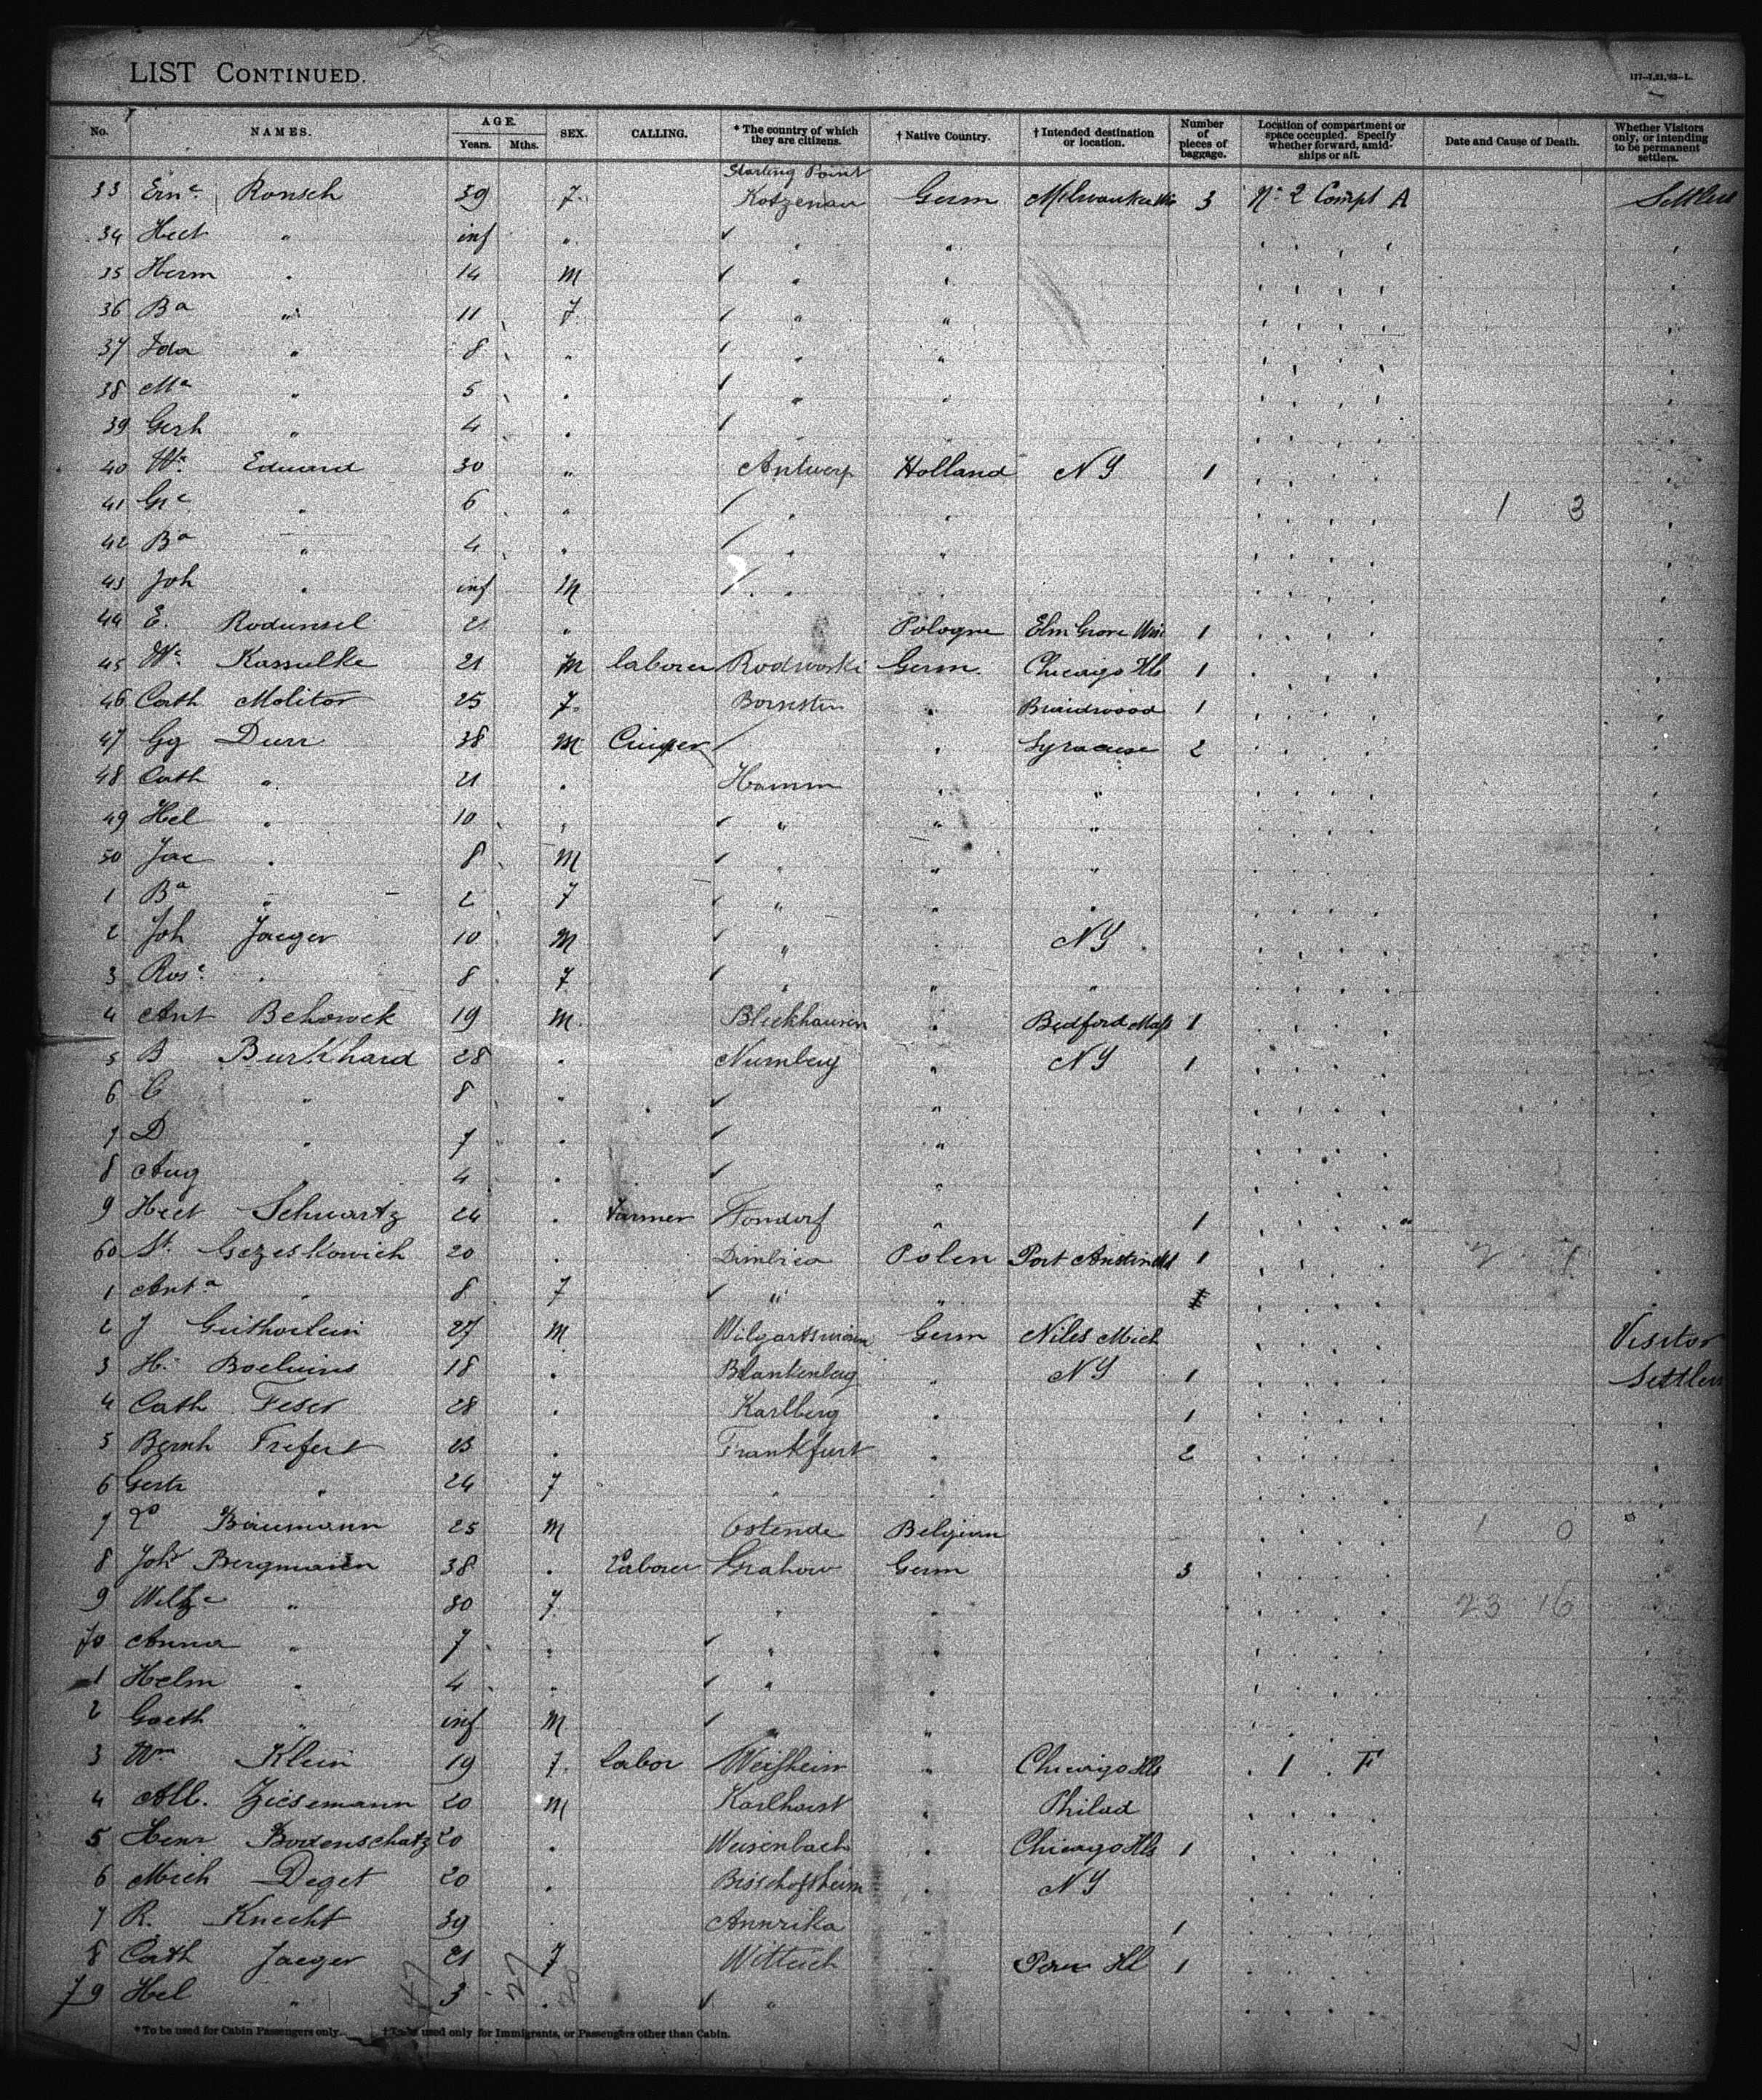 LIST CONTINUED.
117-7,21,'83-L.
No. NAMES. AGE. Years. Mths. SEX. CALLING. * The country of which they are citizens. † Native Country. † Intended destination or location. Number of pieces of baggage. Location of compartment or space occupied. Specify whether forward, amidships or aft. Date and Cause of Death. Whether Visitors only, or intending to be permanent settlers.
Starting Point
33 Ern e Ronsch 39 F. Kotzenau Germ Milwaukee Wis 3 No 2 Compt A Settlers
34 Hect " inf " ✓ " "
35 Herm " 14 M ✓ " "
36 Ba " 11 F. ✓ " "
37 Ida " 8 " ✓ " "
38 Ma " 5 " ✓ " "
39 Gerh " 4 " ✓
40 We Eduard 30 " Antwerp Holland NY 1
41 Gre " 6 " ✓ " " 1 3
42 Ba " 4 " ✓ " "
43 Joh " inf M ✓ " "
44 E. 21 " Pologne Elm Grove Wis 1
45 We Kassulke 21 M laborer Germ. Chicago Ills 1
46 Cath Molitor 25 F. " Braidwood 1
47 Gg Durr 38 M ✓ " Syracuse 2
48 Cath " 21 " Hamm " "
49 Hel " 10 " ✓ " " "
50 Jac " 8 M ✓ " " "
1 Ba " 2 F ✓ " " "
2 Joh Jaeger 10 M ✓ " " NY
3 Rose " 8 F ✓ " " "
4 Ant Behowek 19 M. Bleckhausen " Bedford Mass 1
5 B Burkhard 28 " Nurnberg " NY 1
6 C " 8 " ✓ "
7 D " 7 " ✓ "
8 Aug 4 " ✓ "
9 Hect Schwartz 24 " Farmer " 1
60 St. Gezeskowich 20 " Polen Port Austin 1 2 7
1 Anta " 8 F ✓ " "
2 J 27 M Germ Niles Mich Visitor
3 H. 18 " Blankenberg " NY 1 Settlers
4 Cath Feser 28 " Karlberg " 1
5 Bernh Trefert " Frankfurt " 2
6 Gertr " 24 F "
7 Baumann 25 M Ostende Belgium 1 0
8 Joh Bergmann 38 " Laborer Grahow Germ 3
9 " 30 F. " " 23 16
70 Anna " 7 " ✓ " "
1 Helm " 4 " ✓ " "
2 Goeth " inf M ✓ " "
3 Wm Klein 19 F. labor Weisheim " Chicago Ills 1 F
4 Alb. Ziesemann 20 M Karlhorst " Philad
5 Henr Bodenschatz 20 " Weisenbach " Chicago Ills 1
6 Mich Deget 20 " Bisschofsheim " NY
7 R. Knecht 39 Annrika " 1
8 Cath Jaeger 21 F Wittlich " Peru Ill 1
79 Hel " 3 " ✓ "
27
* To be used for Cabin Passengers only. † To be used only for Immigrants, or Passengers other than Cabin.